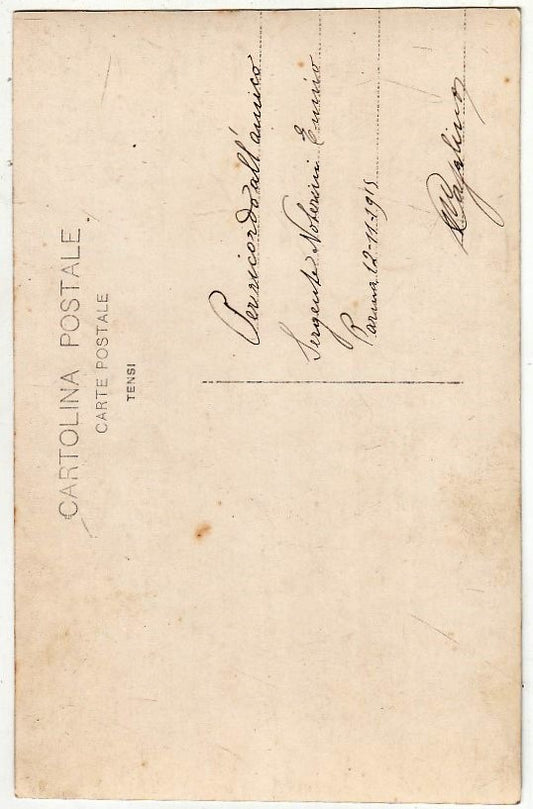 CARTOLINA POSTALE
CARTE POSTALE
TENSI
Per ricordo all'amico
Sergente Ennio
Parma 12-11-1915